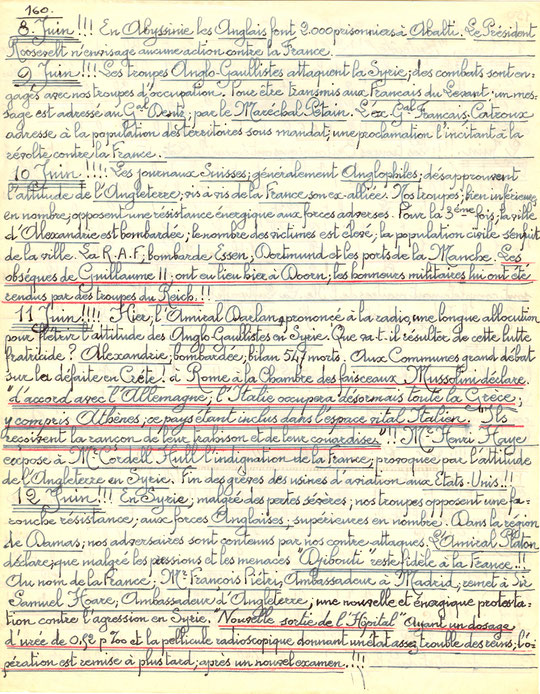 160.
8. Juin!!! En Abyssinie les Anglais font 2.000 prisonniers à Abalti. Le Président
Roosevelt n'envisage aucune action contre la France.
9 Juin!!! Les troupes Anglo-Gaullistes attaquent la Syrie; des combats sont en-
gagés avec nos troupes d'occupation. Pour être transmis aux Français du Levant: un mes-
sage est adressé au Gal Dentz; par le Maréchal Pétain. L'ex Gal Français Catroux
adresse à la population des territoires sous mandat; une proclamation l'incitant à la
révolte contre la France.
10 Juin!!!! Les journaux Suisses; généralement Anglophiles; désapprouvent
l'attitude de l'Angleterre; vis à vis de la France son ex-alliée. Nos troupes; bien inférieures
en nombre; opposent une résistance énergique aux forces adverses. Pour la 3ème fois; la ville
d'Alexandrie est bombardée; le nombre des victimes est élevé; la population civile s'enfuit
de la ville. La R.A.F; bombarde Essen, Dortmund et les ports de la Manche. Les
obsèques de Guillaume II; ont eu lieu hier à Doorn; les honneurs militaires lui ont été
rendus par des troupes du Reich.!!
11 Juin!!!! Hier; l'Amiral Darlan; prononcé à la radio; une longue allocution
pour flétrir l'attitude des Anglo-Gaullistes en Syrie. Que va-t-il résulter de cette lutte
fratricide? Alexandrie; bombardée; bilan 547 morts. Aux Communes grand débat
sur la défaite en Crète! à Rome à la Chambre des faisceaux Mussolini déclare
"d'accord avec l'Allemagne; l'Italie occupera désormais toute la Grèce;
y compris Athènes; ce pays étant inclus dans l'espace vital Italien." "Ils
reçoivent la rançon de leur trahison et de leur couardises"!! Mr Henri Haye
expose à Mr Cordell Hull l'indignation de la France; provoquée par l'attitude
de l'Angleterre en Syrie. Fin des grèves des usines d'aviation aux Etats-Unis.!!
12 Juin!!! En Syrie; malgré des pertes sévères; nos troupes opposent une fa-
rouche résistance; aux forces Anglaises, supérieures en nombre. Dans la région
de Damas; nos adversaires sont contenus par nos contre-attaques. L'Amiral Platon
déclare; que malgré les pressions et les menaces "Djibouti" reste fidèle à la France.!!
Au nom de la France; Mr François Piétri, Ambassadeur à Madrid; remet à Sir
Samuel Hoare, Ambassadeur d'Angleterre; une nouvelle et énergique protesta-
tion contre l'agression en Syrie. "Nouvelle sortie de l'Hôpital" Ayant un dosage
d'urée de et la pellicule radioscopique donnant un état assez trouble des reins; l'o-
pération est remise à plus tard; après un nouvel examen.!!!